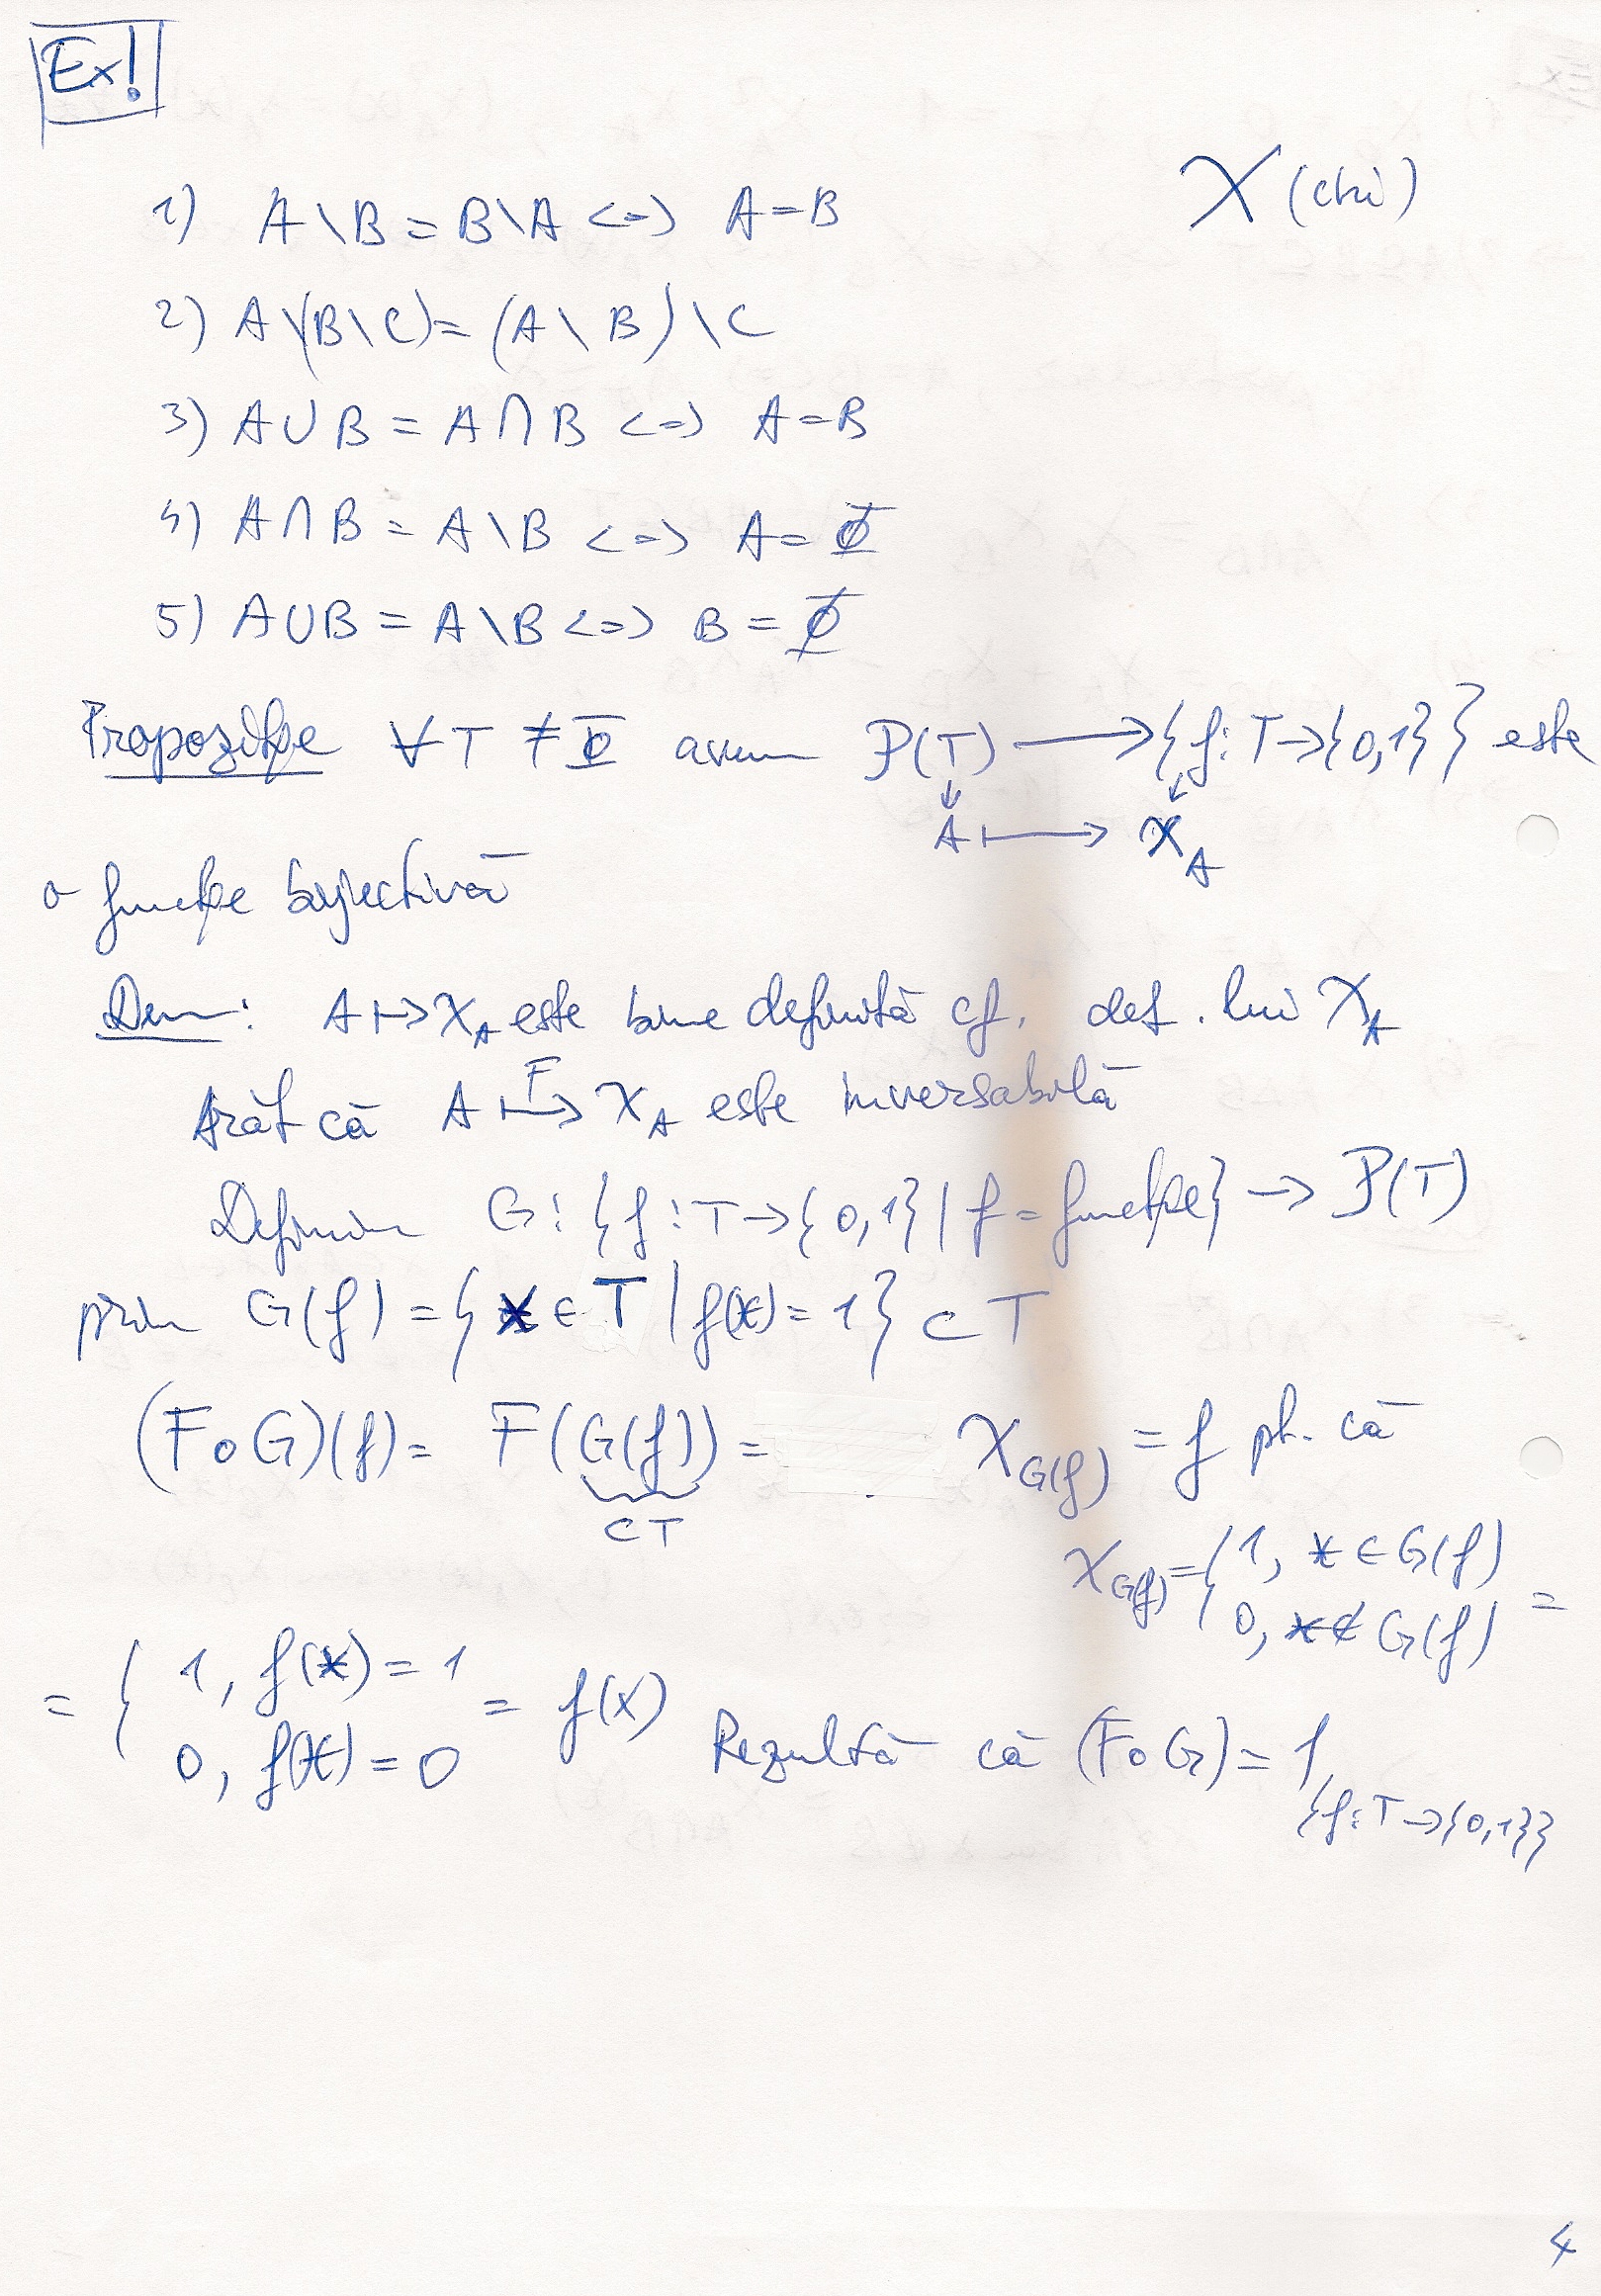 Ex!
χ (chi)
1) A \ B = B \ A <=> A = B
2) A \ (B \ C) = (A \ B) \ C
3) A ∪ B = A ∩ B <=> A = B
4) A ∩ B = A \ B <=> A = Φ
5) A ∪ B = A \ B <=> B = Φ
Propoziție ∀ T ≠ Φ avem P(T) ⟶ {f: T → {0,1}} este
A ⟼ χ_A
o funcție bijectivă
Dem: A ↦ χ_A este bine definită cf. def. lui χ_A
Arăt că A ↦^F χ_A este inversabilă
Definim G: {f : T → {0,1} | f = funcție} → P(T)
prin G(f) = {x ∈ T | f(x) = 1} ⊂ T
(F ∘ G)(f) = F(G(f)) = χ_G(f) = f pt. că
⊂ T
χ_G(f) = { 1, x ∈ G(f)
0, x ∉ G(f) =
= { 1, f(x) = 1
0, f(x) = 0 = f(x) Rezultă că (F ∘ G) = 1_{f: T → {0,1}}
4